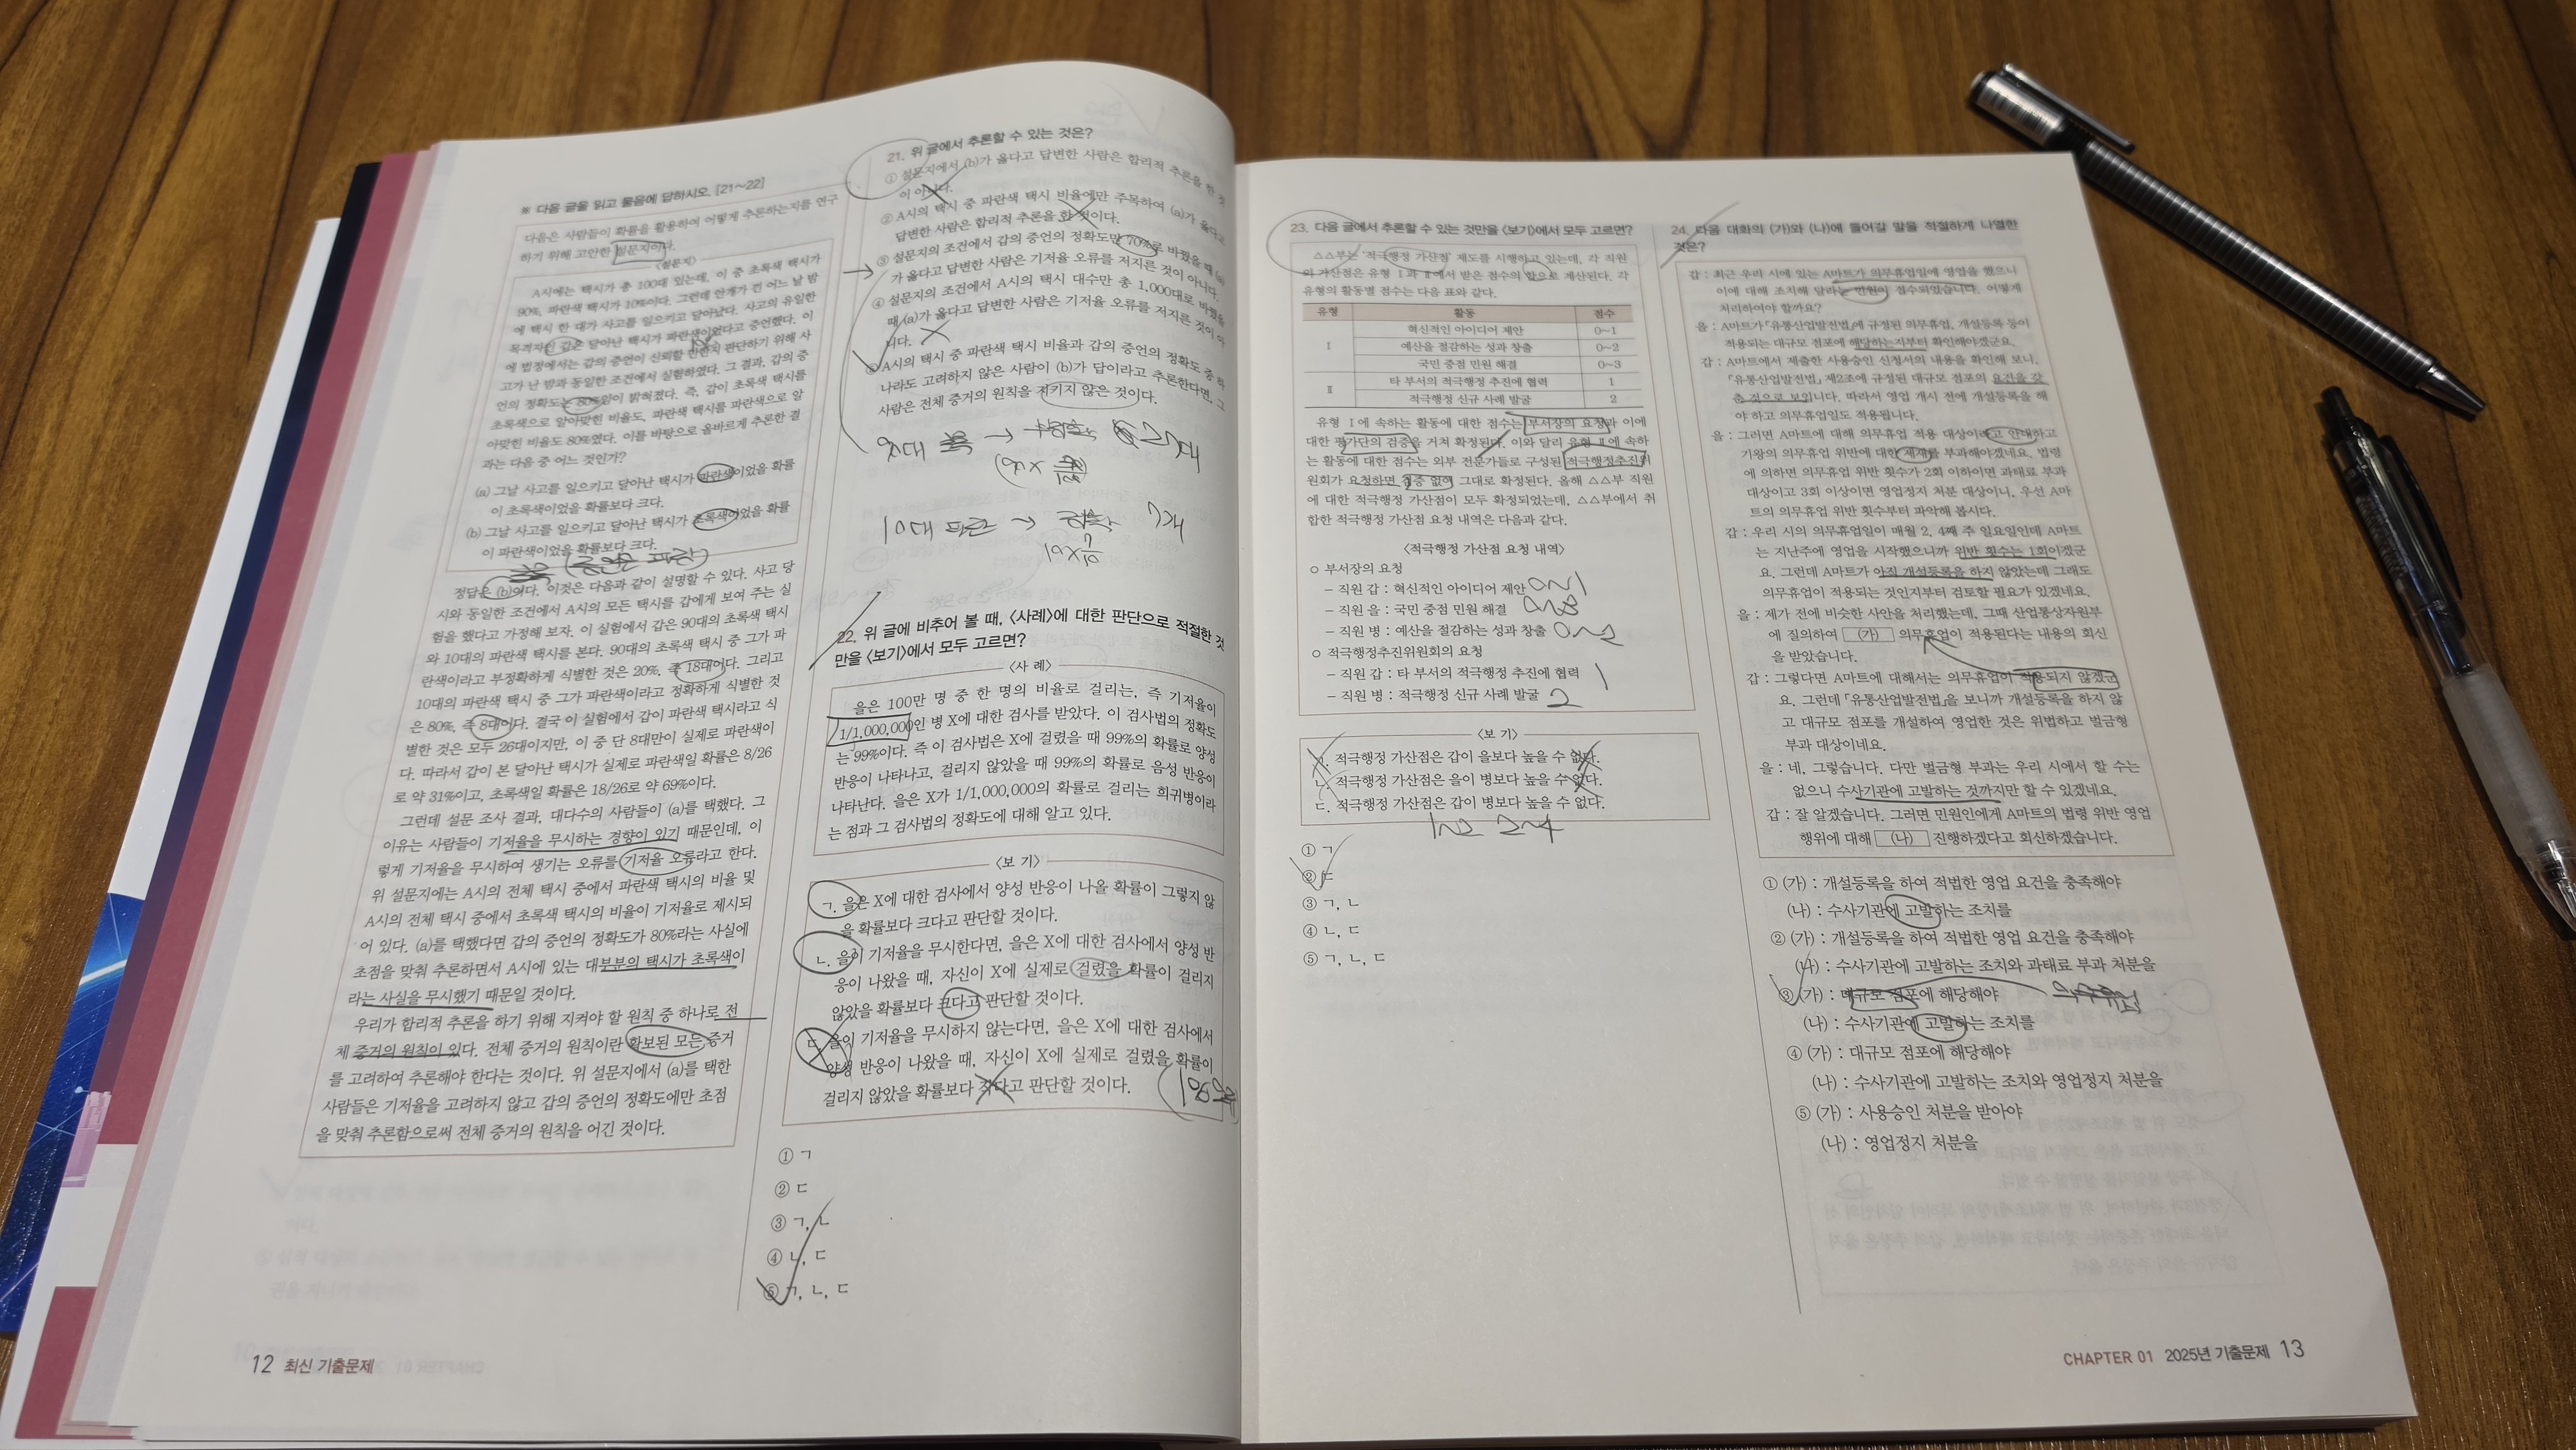 ※ 다음 글을 읽고 물음에 답하시오. [21~22]
다음은 사람들이 확률을 활용하여 어떻게 추론하는지를 연구
하기 위해 고안한 설문지이다.
〈설문지〉
A시에는 택시가 총 100대 있는데, 이 중 초록색 택시가
90%, 파란색 택시가 10%이다. 그런데 안개가 낀 어느 날 밤
에 택시 한 대가 사고를 일으키고 달아났다. 사고의 유일한
목격자인 갑은 달아난 택시가 파란색이었다고 증언했다. 이
에 법정에서는 갑의 증언이 신뢰할 만한지 판단하기 위해 사
고가 난 밤과 동일한 조건에서 실험하였다. 그 결과, 갑의 증
언의 정확도는 80%임이 밝혀졌다. 즉, 갑이 초록색 택시를
초록색으로 알아맞힌 비율도, 파란색 택시를 파란색으로 알
아맞힌 비율도 80%였다. 이를 바탕으로 올바르게 추론한 결
과는 다음 중 어느 것인가?
(a) 그날 사고를 일으키고 달아난 택시가 파란색이었을 확률
이 초록색이었을 확률보다 크다.
(b) 그날 사고를 일으키고 달아난 택시가 초록색이었을 확률
이 파란색이었을 확률보다 크다.
(증언은 파랑)
정답은 (b)이다. 이것은 다음과 같이 설명할 수 있다. 사고 당
시와 동일한 조건에서 A시의 모든 택시를 갑에게 보여 주는 실
험을 했다고 가정해 보자. 이 실험에서 갑은 90대의 초록색 택시
와 10대의 파란색 택시를 본다. 90대의 초록색 택시 중 그가 파
란색이라고 부정확하게 식별한 것은 20%, 즉 18대이다. 그리고
10대의 파란색 택시 중 그가 파란색이라고 정확하게 식별한 것
은 80%, 즉 8대이다. 결국 이 실험에서 갑이 파란색 택시라고 식
별한 것은 모두 26대이지만, 이 중 단 8대만이 실제로 파란색이
다. 따라서 갑이 본 달아난 택시가 실제로 파란색일 확률은 8/26
로 약 31%이고, 초록색일 확률은 18/26로 약 69%이다.
그런데 설문 조사 결과, 대다수의 사람들이 (a)를 택했다. 그
이유는 사람들이 기저율을 무시하는 경향이 있기 때문인데, 이
렇게 기저율을 무시하여 생기는 오류를 기저율 오류라고 한다.
위 설문지에는 A시의 전체 택시 중에서 파란색 택시의 비율 및
A시의 전체 택시 중에서 초록색 택시의 비율이 기저율로 제시되
어 있다. (a)를 택했다면 갑의 증언의 정확도가 80%라는 사실에
초점을 맞춰 추론하면서 A시에 있는 대부분의 택시가 초록색이
라는 사실을 무시했기 때문일 것이다.
우리가 합리적 추론을 하기 위해 지켜야 할 원칙 중 하나로 전
체 증거의 원칙이 있다. 전체 증거의 원칙이란 확보된 모든 증거
를 고려하여 추론해야 한다는 것이다. 위 설문지에서 (a)를 택한
사람들은 기저율을 고려하지 않고 갑의 증언의 정확도에만 초점
을 맞춰 추론함으로써 전체 증거의 원칙을 어긴 것이다.
12 최신 기출문제
21. 위 글에서 추론할 수 있는 것은?
① 설문지에서 (b)가 옳다고 답변한 사람은 합리적 추론을 한 것
이 아니다.
② A시의 택시 중 파란색 택시 비율에만 주목하여 (a)가 옳다고
답변한 사람은 합리적 추론을 한 것이다.
③ 설문지의 조건에서 갑의 증언의 정확도만 70%로 바꿨을 때 (a)
가 옳다고 답변한 사람은 기저율 오류를 저지른 것이 아니다.
④ 설문지의 조건에서 A시의 택시 대수만 총 1,000대로 바꿨을
때 (a)가 옳다고 답변한 사람은 기저율 오류를 저지른 것이 아
니다.
⑤ A시의 택시 중 파란색 택시 비율과 갑의 증언의 정확도 중 하
나라도 고려하지 않은 사람이 (b)가 답이라고 추론한다면, 그
사람은 전체 증거의 원칙을 지키지 않은 것이다.
90대 → 27대
10대 파란 → 7개
10×7/10
22. 위 글에 비추어 볼 때, 〈사례〉에 대한 판단으로 적절한 것
만을 〈보기〉에서 모두 고르면?
〈사 례〉
을은 100만 명 중 한 명의 비율로 걸리는, 즉 기저율이
1/1,000,000인 병 X에 대한 검사를 받았다. 이 검사법의 정확도
는 99%이다. 즉 이 검사법은 X에 걸렸을 때 99%의 확률로 양성
반응이 나타나고, 걸리지 않았을 때 99%의 확률로 음성 반응이
나타난다. 을은 X가 1/1,000,000의 확률로 걸리는 희귀병이라
는 점과 그 검사법의 정확도에 대해 알고 있다.
〈보 기〉
ㄱ. 을은 X에 대한 검사에서 양성 반응이 나올 확률이 그렇지 않
을 확률보다 크다고 판단할 것이다.
ㄴ. 을이 기저율을 무시한다면, 을은 X에 대한 검사에서 양성 반
응이 나왔을 때, 자신이 X에 실제로 걸렸을 확률이 걸리지
않았을 확률보다 크다고 판단할 것이다.
ㄷ. 을이 기저율을 무시하지 않는다면, 을은 X에 대한 검사에서
양성 반응이 나왔을 때, 자신이 X에 실제로 걸렸을 확률이
걸리지 않았을 확률보다 작다고 판단할 것이다.
① ㄱ
② ㄷ
③ ㄱ, ㄴ
④ ㄴ, ㄷ
⑤ ㄱ, ㄴ, ㄷ
23. 다음 글에서 추론할 수 있는 것만을 〈보기〉에서 모두 고르면?
△△부는 '적극행정 가산점' 제도를 시행하고 있는데, 각 직원
의 가산점은 유형 Ⅰ과 Ⅱ에서 받은 점수의 합으로 계산된다. 각
유형의 활동별 점수는 다음 표와 같다.
유형 활동 점수
Ⅰ 혁신적인 아이디어 제안 0~1
예산을 절감하는 성과 창출 0~2
국민 중점 민원 해결 0~3
Ⅱ 타 부서의 적극행정 추진에 협력 1
적극행정 신규 사례 발굴 2
유형 Ⅰ에 속하는 활동에 대한 점수는 부서장의 요청과 이에
대한 평가단의 검증을 거쳐 확정된다. 이와 달리 유형 Ⅱ에 속하
는 활동에 대한 점수는 외부 전문가들로 구성된 적극행정추진위
원회가 요청하면 검증 없이 그대로 확정된다. 올해 △△부 직원
에 대한 적극행정 가산점이 모두 확정되었는데, △△부에서 취
합한 적극행정 가산점 요청 내역은 다음과 같다.
〈적극행정 가산점 요청 내역〉
○ 부서장의 요청
- 직원 갑 : 혁신적인 아이디어 제안 0~1
- 직원 을 : 국민 중점 민원 해결 0~3
- 직원 병 : 예산을 절감하는 성과 창출 0~2
○ 적극행정추진위원회의 요청
- 직원 갑 : 타 부서의 적극행정 추진에 협력 1
- 직원 병 : 적극행정 신규 사례 발굴 2
〈보 기〉
ㄱ. 적극행정 가산점은 갑이 을보다 높을 수 없다.
ㄴ. 적극행정 가산점은 을이 병보다 높을 수 없다.
ㄷ. 적극행정 가산점은 갑이 병보다 높을 수 없다.
1~2 2~4
① ㄱ
② ㄷ
③ ㄱ, ㄴ
④ ㄴ, ㄷ
⑤ ㄱ, ㄴ, ㄷ
24. 다음 대화의 (가)와 (나)에 들어갈 말을 적절하게 나열한
것은?
갑 : 최근 우리 시에 있는 A마트가 의무휴업일에 영업을 했으니
이에 대해 조치해 달라는 민원이 접수되었습니다. 어떻게
처리하여야 할까요?
을 : A마트가 「유통산업발전법」에 규정된 의무휴업, 개설등록 등이
적용되는 대규모 점포에 해당하는지부터 확인해야겠군요.
갑 : A마트에서 제출한 사용승인 신청서의 내용을 확인해 보니,
「유통산업발전법」 제2조에 규정된 대규모 점포의 요건을 갖
춘 것으로 보입니다. 따라서 영업 개시 전에 개설등록을 해
야 하고 의무휴업일도 적용됩니다.
을 : 그러면 A마트에 대해 의무휴업 적용 대상이라고 안내하고
기왕의 의무휴업 위반에 대한 제재를 부과해야겠네요. 법령
에 의하면 의무휴업 위반 횟수가 2회 이하이면 과태료 부과
대상이고 3회 이상이면 영업정지 처분 대상이니, 우선 A마
트의 의무휴업 위반 횟수부터 파악해 봅시다.
갑 : 우리 시의 의무휴업일이 매월 2, 4째 주 일요일인데 A마트
는 지난주에 영업을 시작했으니까 위반 횟수는 1회이겠군
요. 그런데 A마트가 아직 개설등록을 하지 않았는데 그래도
의무휴업이 적용되는 것인지부터 검토할 필요가 있겠네요.
을 : 제가 전에 비슷한 사안을 처리했는데, 그때 산업통상자원부
에 질의하여 (가) 의무휴업이 적용된다는 내용의 회신
을 받았습니다.
갑 : 그렇다면 A마트에 대해서는 의무휴업이 적용되지 않겠군
요. 그런데 「유통산업발전법」을 보니까 개설등록을 하지 않
고 대규모 점포를 개설하여 영업한 것은 위법하고 벌금형
부과 대상이네요.
을 : 네, 그렇습니다. 다만 벌금형 부과는 우리 시에서 할 수는
없으니 수사기관에 고발하는 것까지만 할 수 있겠네요.
갑 : 잘 알겠습니다. 그러면 민원인에게 A마트의 법령 위반 영업
행위에 대해 (나) 진행하겠다고 회신하겠습니다.
① (가) : 개설등록을 하여 적법한 영업 요건을 충족해야
(나) : 수사기관에 고발하는 조치를
② (가) : 개설등록을 하여 적법한 영업 요건을 충족해야
(나) : 수사기관에 고발하는 조치와 과태료 부과 처분을
③ (가) : 대규모 점포에 해당해야
(나) : 수사기관에 고발하는 조치를
④ (가) : 대규모 점포에 해당해야
(나) : 수사기관에 고발하는 조치와 영업정지 처분을
⑤ (가) : 사용승인 처분을 받아야
(나) : 영업정지 처분을
CHAPTER 01 2025년 기출문제 13